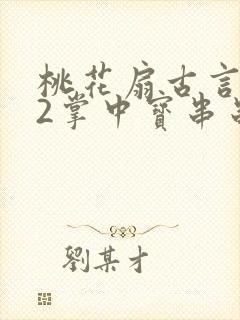 桃花扇古言
2掌中寳串
劉某才